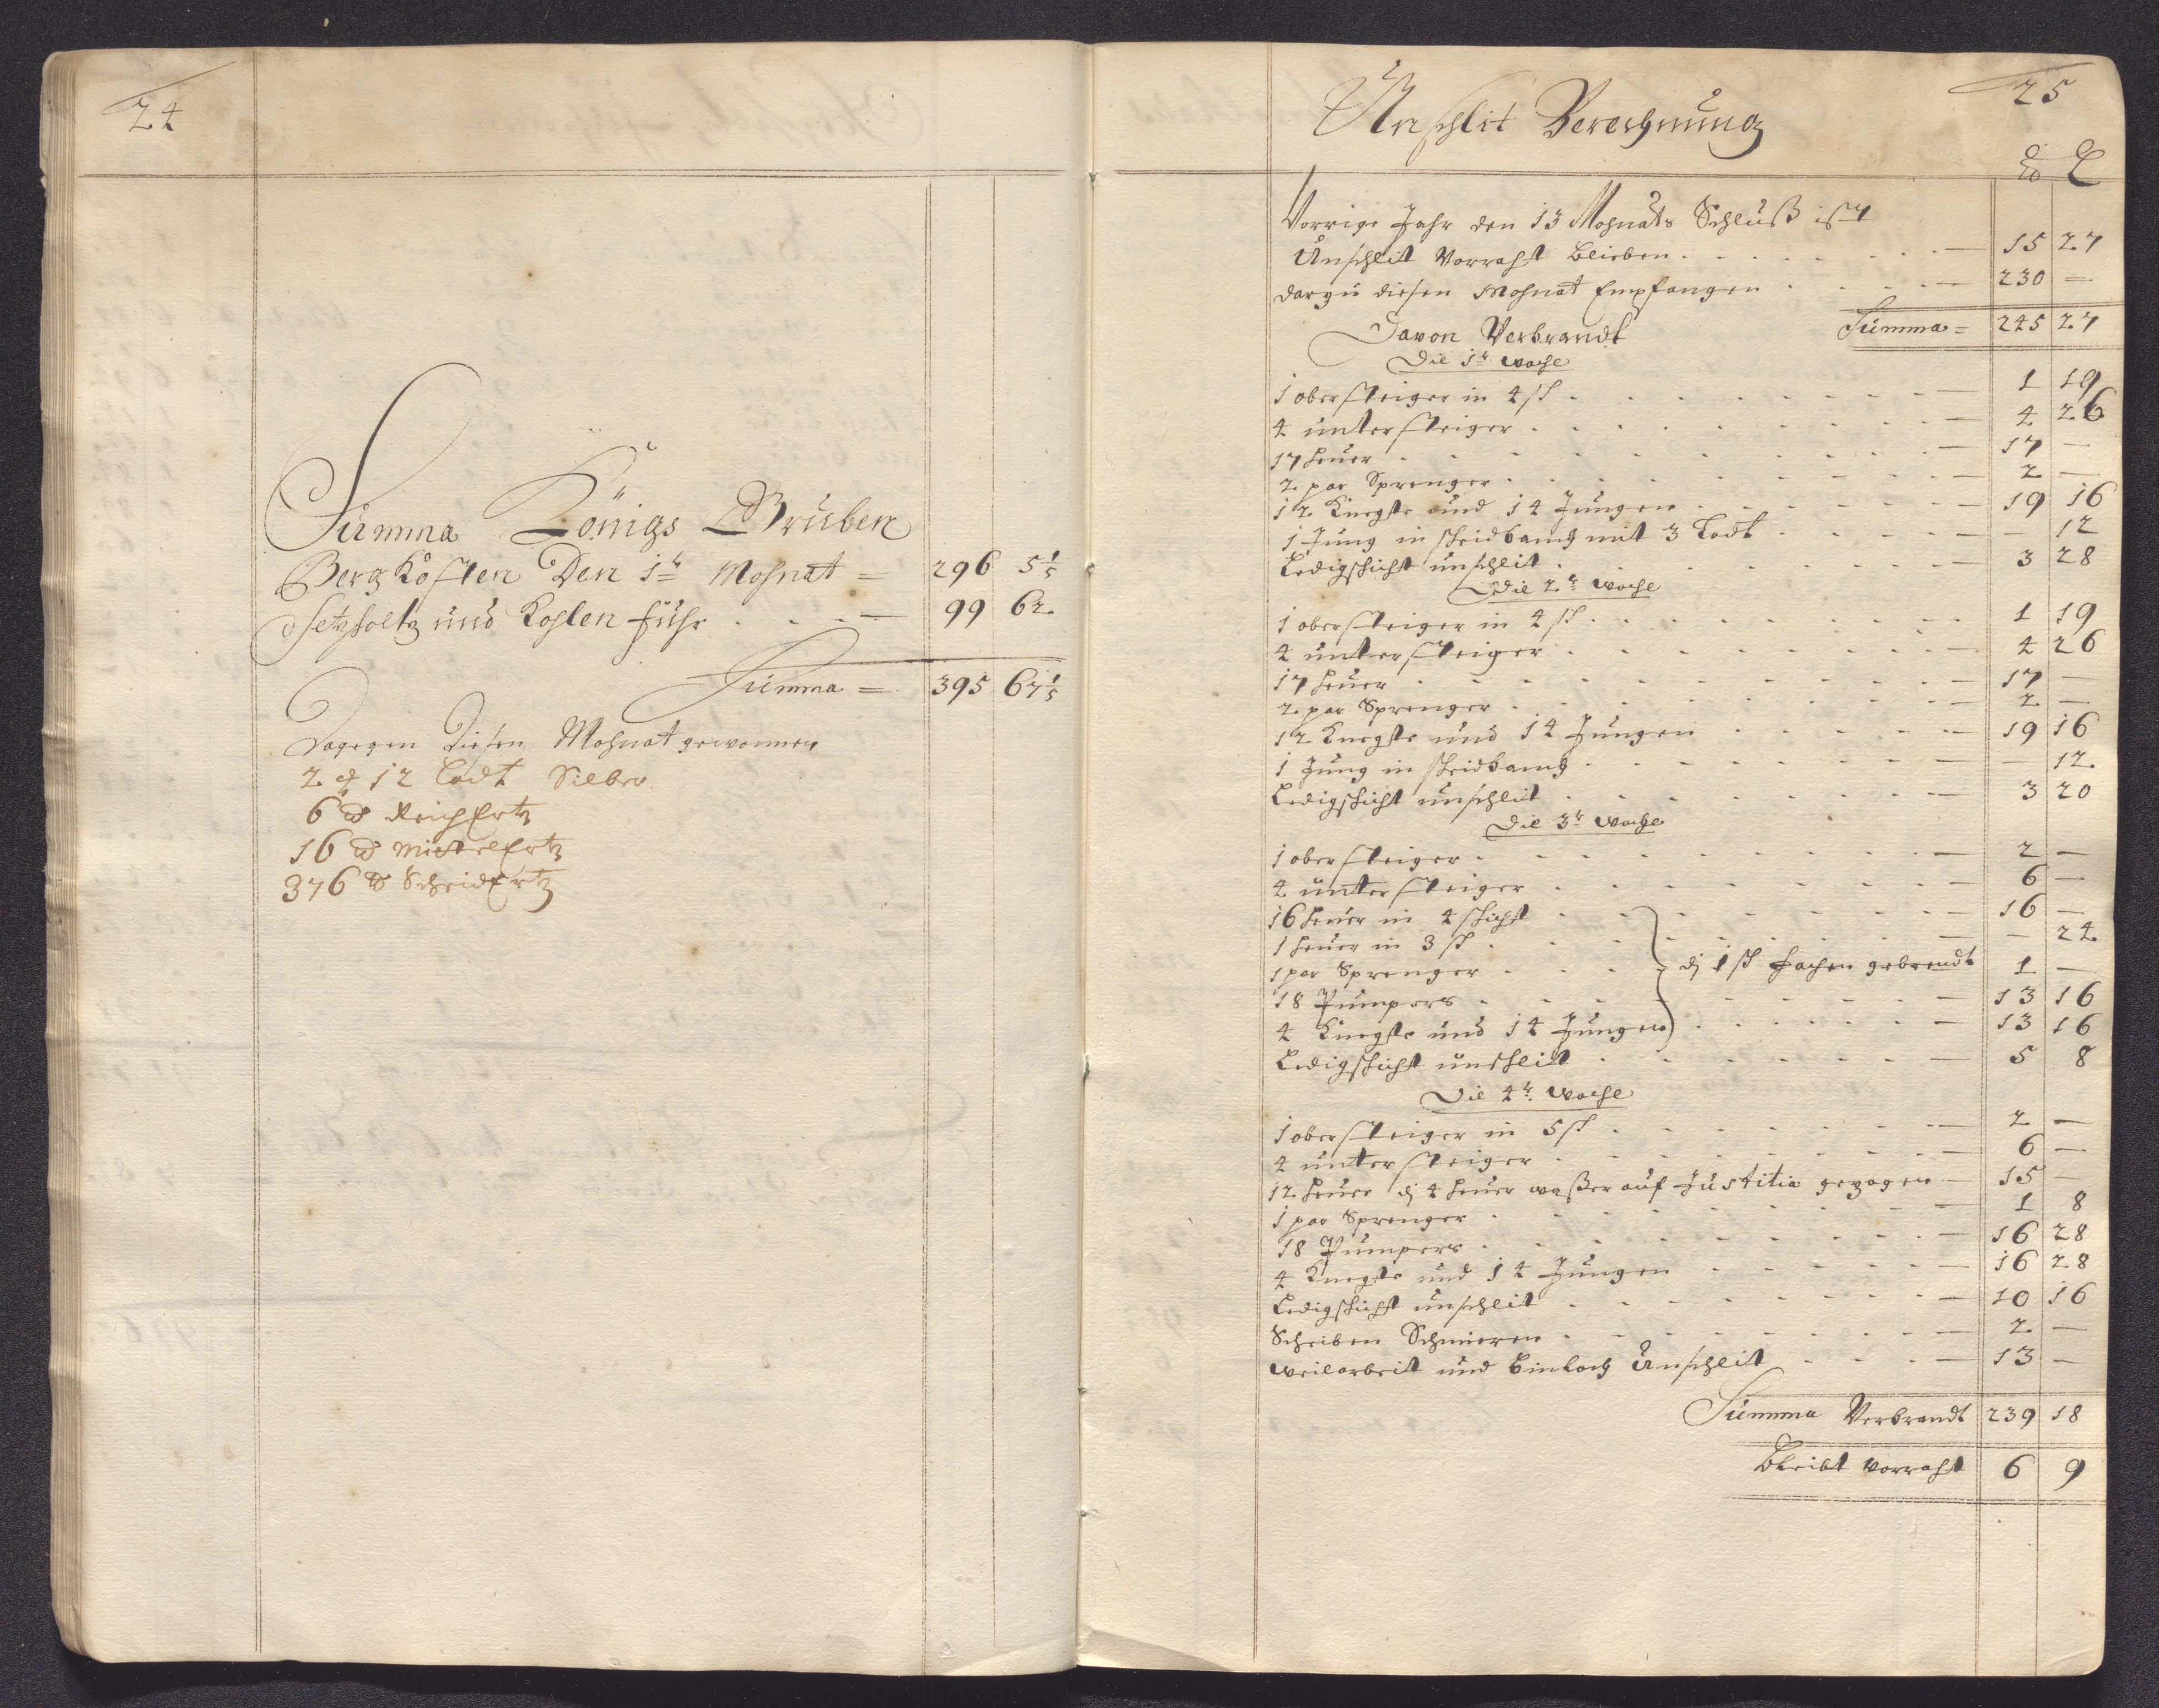 24
Summa Königs Gruben
Berg Kosten Den 1t Mohnat = 296 5 1/5
Setzholtz und Kohlen fuhr . . . — 99 62
Summa = 395 67 1/5
Dagegen diesen Mohnat gewonnen
2 ℔ 12 Lodt Silber
6 ℔ Reich Ertz
16 ℔ Mittel Ertz
376 ℔ Scheid Ertz
25
Unschlit Berechnung
℔ L
Vorrige Jahr den 13 Mohnats Schluß ist
Unschlit Vorraht blieben . . . — 15 27
darzu diesen Mohnat Empfangen . . . — 230 —
Summa = 245 27
Davon Verbrandt
Die 1t woche
1 obersteiger in 4 sch . . . — 1 19
4 untersteiger . . . — 4 26
17 heuer . . . — 17 —
2 par Sprenger . . . — 2 —
12 Knegte und 14 Jungen . . . 19 16
1 Jung in scheidbanck mit 3 Lodt . . . — — 12
Ledigschicht unschlit . . . — 3 28
Die 2t woche
1 obersteiger in 4 sch . . . 1 19
4 untersteiger . . . — 4 26
17 heuer . . . — 17 —
2 par Sprenger . . . — 2 —
12 Knegte und 14 Jungen . . . — 19 16
1 Jung in scheidbanck . . . — — 12
Ledigschicht unschlit . . . — 3 20
Die 3t woche
1 obersteiger . . . — 2 —
4 untersteiger . . . — 6 —
16 heuer in 4 schicht . . . — 16 —
1 heuer in 3 sch . . . — — 24
1 par Sprenger . . . dj 1 sch gebrendt 1 —
18 Pumpers . . . — 13 16
4 Knegte und 14 Jungen . . . — 13 16
Ledigschicht unschlit . . . — 5 8
Die 4t woche
1 obersteiger in 5 sch . . . — 2 —
4 untersteiger . . . — 6 —
12 heuer dj 4 heuer waßer auf Justitia gezogen — 15 —
1 par Sprenger . . . — 1 8
18 Pumpers . . . — 16 28
4 Knegte und 14 Jungen . . . — 16 28
Ledigschicht unschlit . . . — 10 16
Scheiben Schmieren . . . — 2 —
weilarbeit und Unschlit . . . — 13 —
Summa Verbrandt 239 18
Bleibt vorraht 6 9